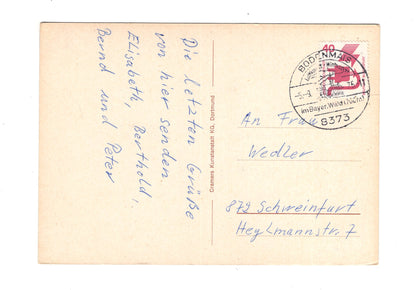 Die letzten Grüße
von hier senden
Elisabeth, Berthold,
Bernd und Peter
Cramers Kunstanstalt KG, Dortmund
40
BODENMAIS
im Bayer. Wald
8373
An Frau
Wedler
872 Schweinfurt
Heylmannstr. 7